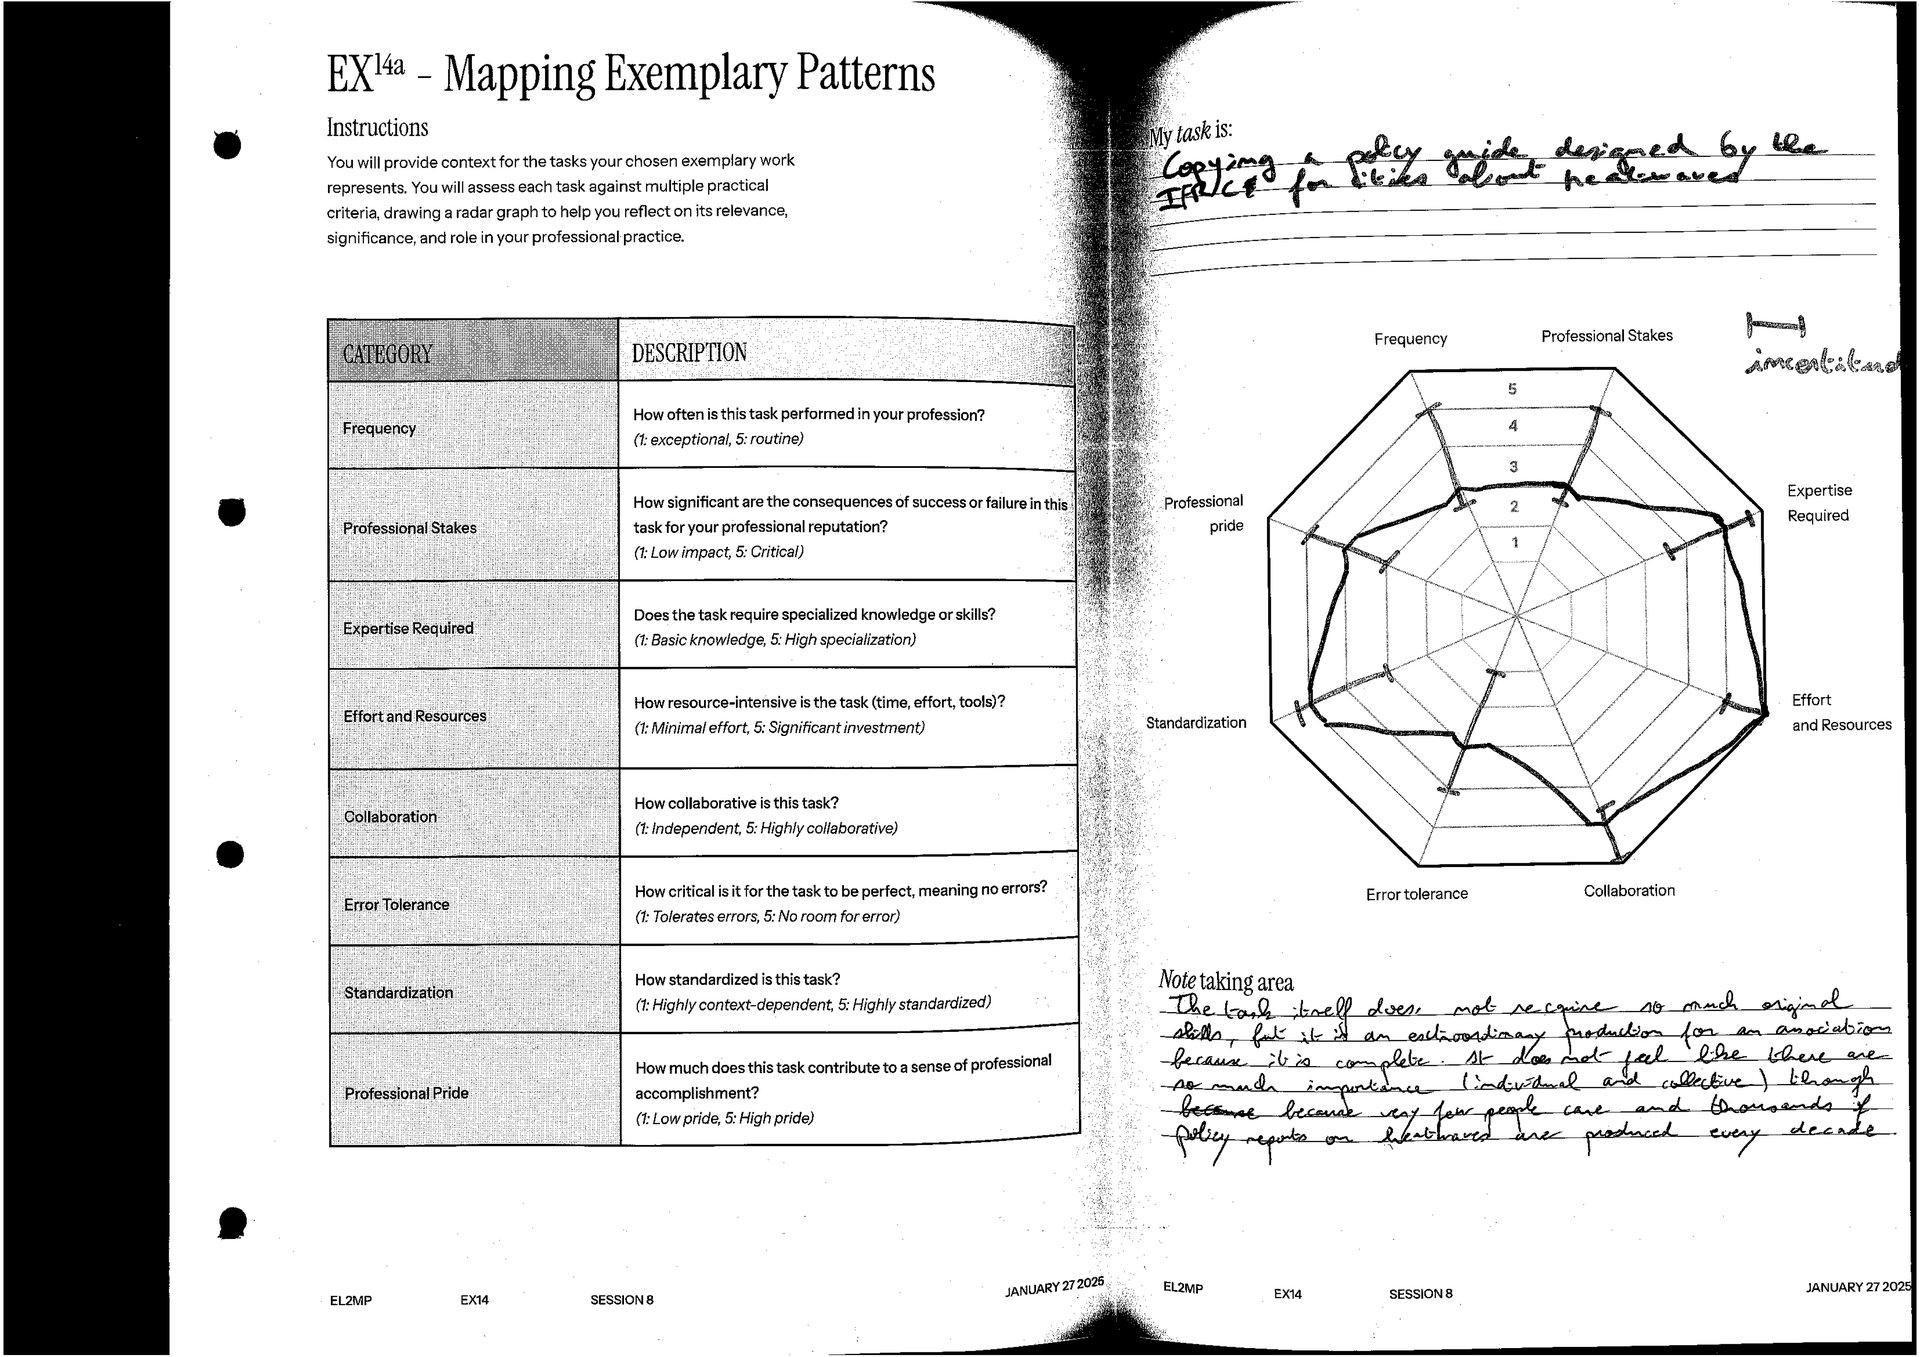 EX14a – Mapping Exemplary Patterns
Instructions
You will provide context for the tasks your chosen exemplary work
represents. You will assess each task against multiple practical
criteria, drawing a radar graph to help you reflect on its relevance,
significance, and role in your professional practice.
CATEGORY DESCRIPTION
Frequency
How often is this task performed in your profession?
(1: exceptional, 5: routine)
Professional Stakes
How significant are the consequences of success or failure in this
task for your professional reputation?
(1: Low impact, 5: Critical)
Expertise Required
Does the task require specialized knowledge or skills?
(1: Basic knowledge, 5: High specialization)
Effort and Resources
How resource-intensive is the task (time, effort, tools)?
(1: Minimal effort, 5: Significant investment)
Collaboration
How collaborative is this task?
(1: Independent, 5: Highly collaborative)
Error Tolerance
How critical is it for the task to be perfect, meaning no errors?
(1: Tolerates errors, 5: No room for error)
Standardization
How standardized is this task?
(1: Highly context-dependent, 5: Highly standardized)
Professional Pride
How much does this task contribute to a sense of professional
accomplishment?
(1: Low pride, 5: High pride)
EL2MP EX14 SESSION 8 JANUARY 27 2025
My task is:
Copying a policy guide designed by the
for cities about heatwaves
incertitud
Frequency Professional Stakes
5
4
3
2
1
Expertise
Required
Effort
and Resources
Collaboration
Error tolerance
Standardization
Professional
pride
Note taking area
The task itself does not require so much original
skills, but it is an extraordinary production for an association
because it is complete. It does not feel like there are
so much importance (individual and collective) through
because because very few people care and thousands of
policy reports on heatwaves are produced every decade
EL2MP EX14 SESSION 8 JANUARY 27 2025